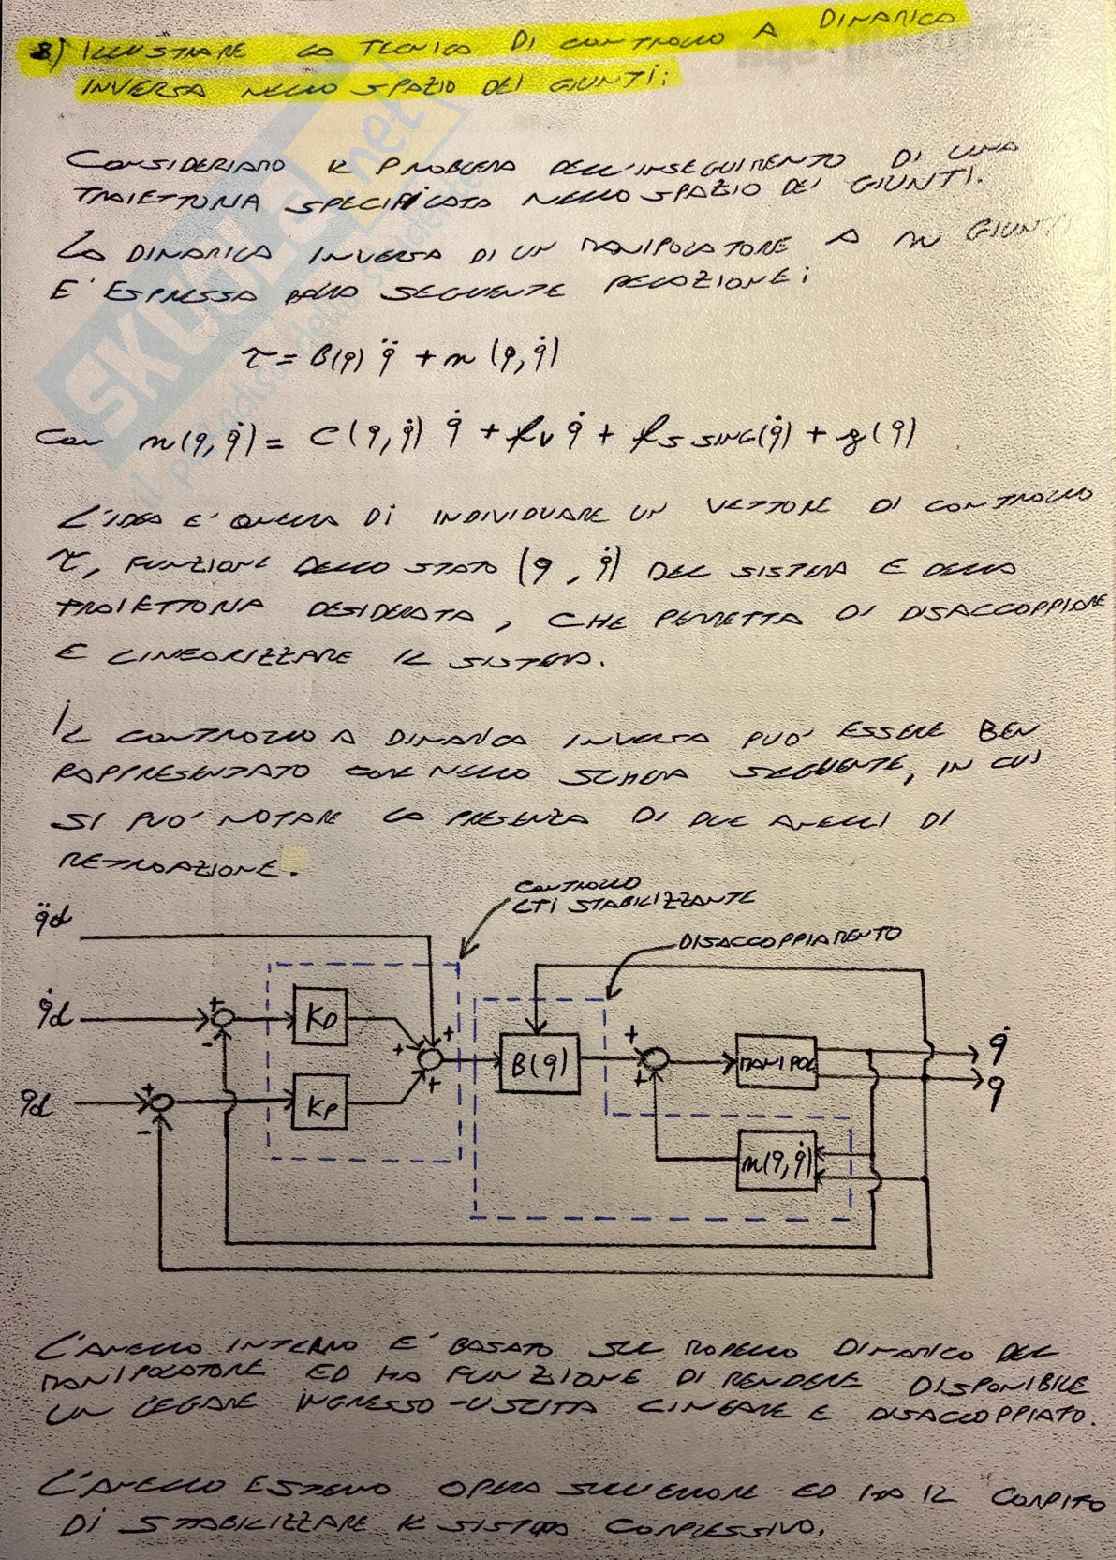 8) ILLUSTRARE LA TECNICA DI CONTROLLO A DINAMICA
INVERSA NELLO SPAZIO DEI GIUNTI:
CONSIDERIAMO IL PROBLEMA DELL'INSEGUIMENTO DI UNA
TRAIETTORIA SPECIFICATA NELLO SPAZIO DEI GIUNTI.
LA DINAMICA INVERSA DI UN MANIPOLATORE A m GIUNTI
E' ESPRESSA DALLA SEGUENTE RELAZIONE:
τ = B(q) q̈ + m(q, q̇)
CON m(q, q̇) = C(q, q̇) q̇ + fv q̇ + fs SING(q̇) + g(q)
L'IDEA E' QUELLA DI INDIVIDUARE UN VETTORE DI CONTROLLO
τ, FUNZIONE DELLO STATO (q, q̇) DEL SISTEMA E DELLA
TRAIETTORIA DESIDERATA, CHE PERMETTA DI DISACCOPPIARE
E LINEARIZZARE IL SISTEMA.
IL CONTROLLO A DINAMICA INVERSA PUO' ESSERE BEN
RAPPRESENTATO COME NELLO SCHEMA SEGUENTE, IN CUI
SI PUO' NOTARE LA PRESENZA DI DUE ANELLI DI
RETROAZIONE.
CONTROLLO
LTI STABILIZZANTE
DISACCOPPIAMENTO
q̈d
q̇d + - KD
+ + +
B(q)
+ +
MANIPOL
q̇
q
qd + - KP
m(q, q̇)
L'ANELLO INTERNO E' BASATO SUL MODELLO DINAMICO DEL
MANIPOLATORE ED HA FUNZIONE DI RENDERE DISPONIBILE
UN LEGAME INGRESSO-USCITA LINEARE E DISACCOPPIATO.
L'ANELLO ESTERNO OPERA SULL'ERRORE ED HA IL COMPITO
DI STABILIZZARE IL SISTEMA COMPLESSIVO.